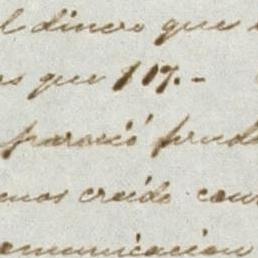 l dinero que
as que 117.-
pareció prud
enos creido con
omunicacion